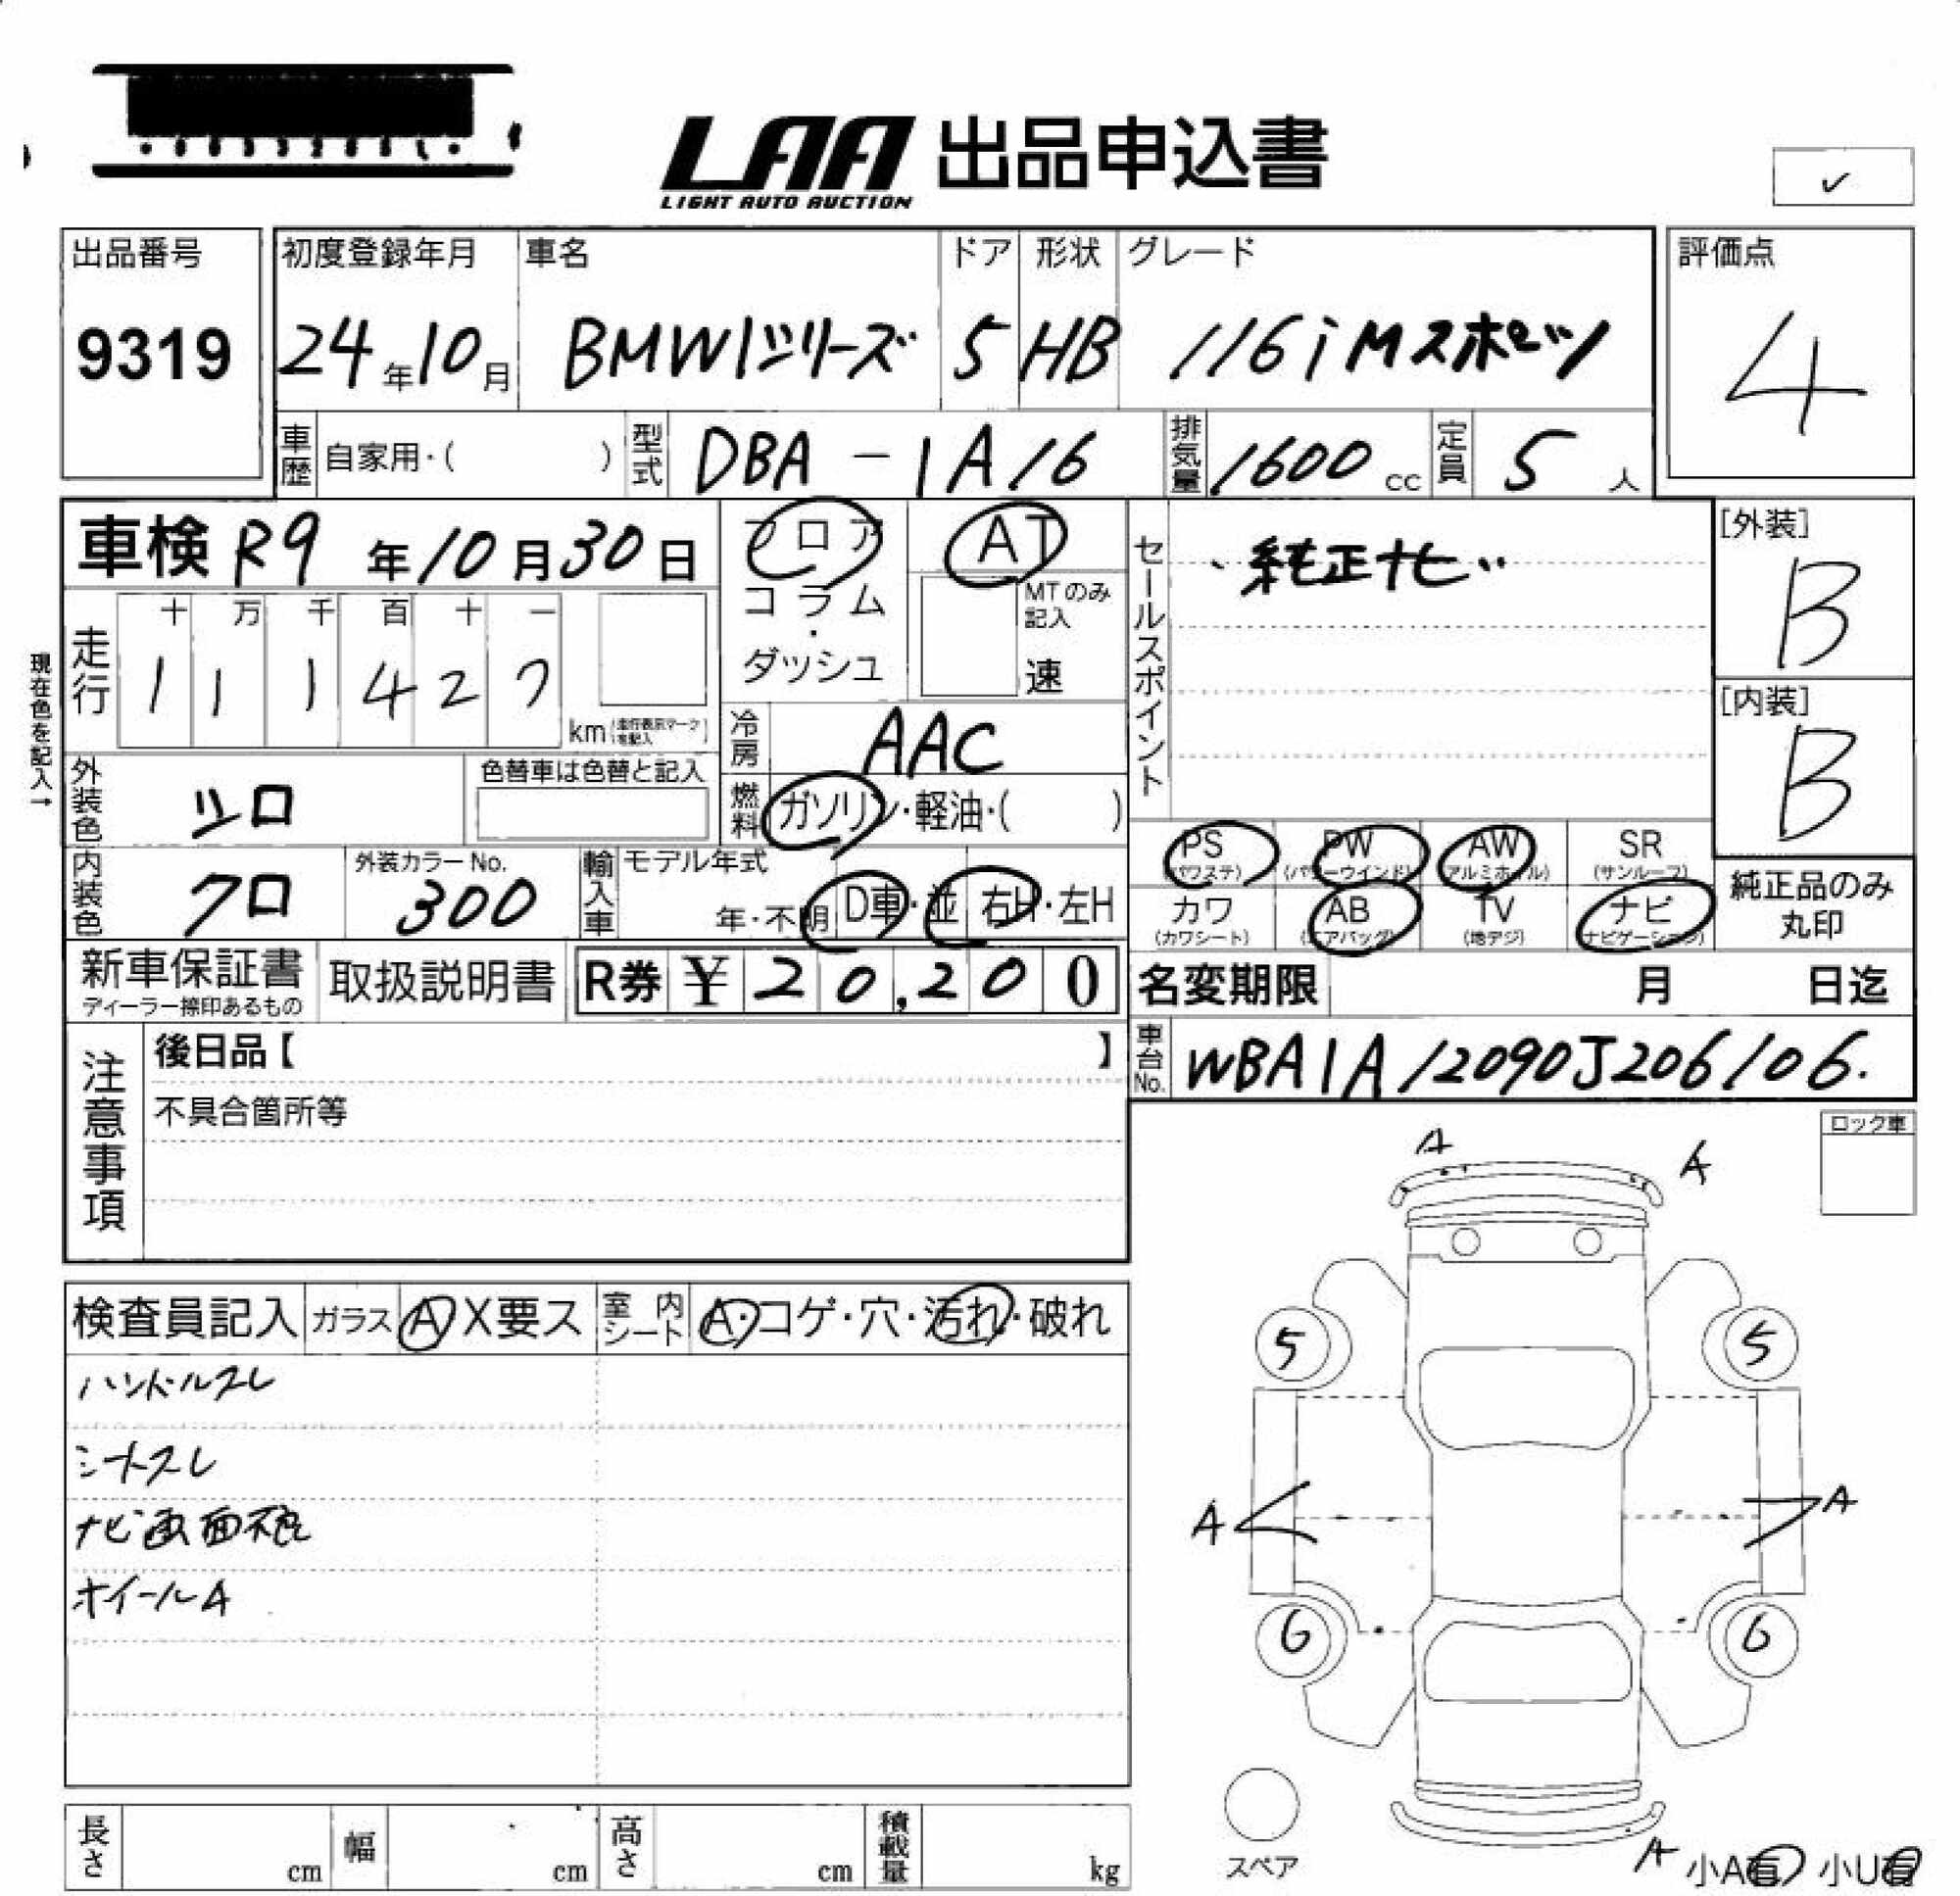 LAA 出品申込書
LIGHT AUTO AUCTION
出品番号 初度登録年月 車名 ドア 形状 グレード 評価点
9319 24年10月 BMW1シリーズ 5 HB 116i Mスポーツ 4
車歴 自家用・( ) 型式 DBA-1A16 排気量 1600cc 定員 5人
車検 R9年10月30日 フロア AT
コラム・ダッシュ MTのみ記入 速
セールスポイント ・純正ナビ
[外装] B
現在色を記入→
走行 十 万 千 百 十 一
1 1 1 4 2 7 km (走行表示マークを記入)
冷房 AAC
[内装] B
外装色 シロ 色替車は色替と記入
燃料 ガソリン・軽油・( )
PS (パワステ) PW (パワーウインド) AW (アルミホイル) SR (サンルーフ)
内装色 クロ 外装カラーNo. 300 輸入車 モデル年式 年・不明 D車・並 右H・左H
カワ (カワシート) AB (エアバッグ) TV (地デジ) ナビ (ナビゲーション)
純正品のみ丸印
新車保証書 ディーラー捺印あるもの 取扱説明書 R券 ¥20,200 名変期限 月 日迄
注意事項 後日品【 】 車台No. WBA1A12090J206106.
不具合箇所等
ロック車
A A
検査員記入 ガラス A X要ス 室内シート A・コゲ・穴・汚れ・破れ
ハンドルスレ
5 5
シートスレ
ナビ画面痕
A A
ホイールA
6 6
スペア
長さ cm 幅 cm 高さ cm 積載量 kg
A 小A有 小U有